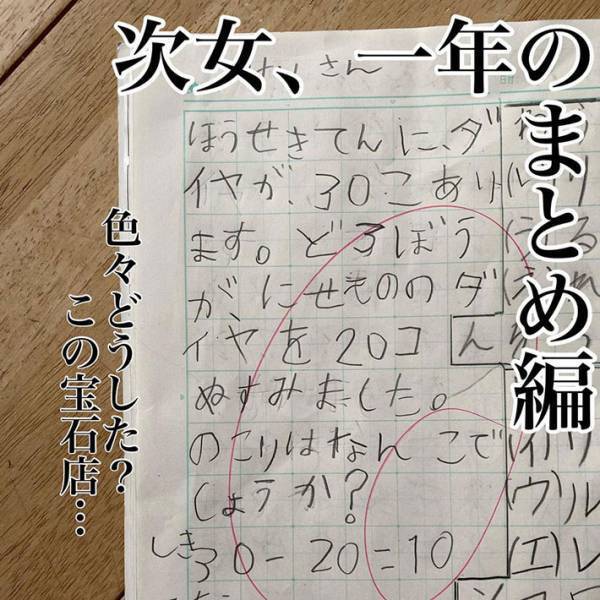 次女、一年の
まとめ編
色々どうした?
この宝石店…
さん
ほうせきてんに、ダ
イヤが、30こあり
ます。どろぼう
が、にせもののダ
イヤを20コ
ぬすみました。
のこりはなんこで
しょうか?
しき
30-20=10
ん
(イ)リ
(ウ)ル
(エ)レ